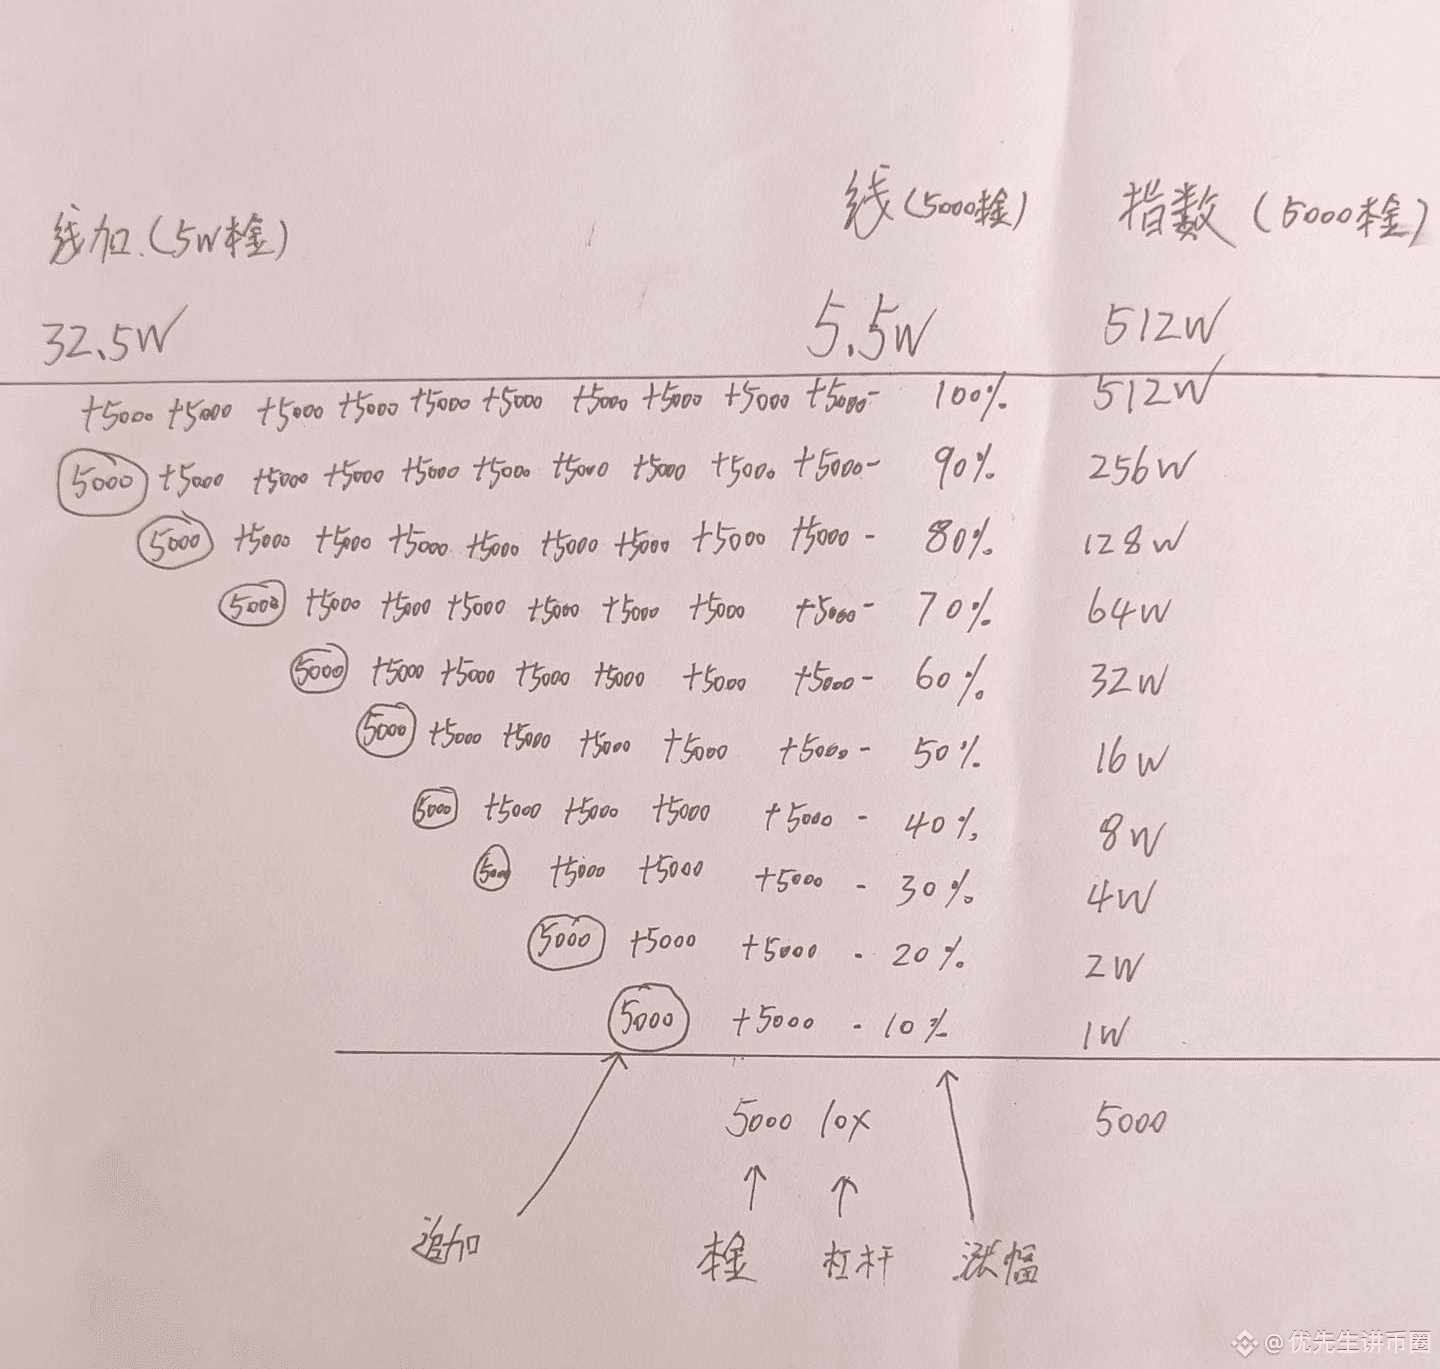 线加.(5W本金) 线(5000本金) 指数(5000本金)
32.5W 5.5W 512W
+5000 +5000 +5000 +5000 +5000 +5000 +5000 +5000 +5000 +5000- 100% 512W
5000 +5000 +5000 +5000 +5000 +5000 +5000 +5000 +5000 +5000- 90% 256W
5000 +5000 +5000 +5000 +5000 +5000 +5000 +5000 +5000- 80% 128W
5000 +5000 +5000 +5000 +5000 +5000 +5000 +5000- 70% 64W
5000 +5000 +5000 +5000 +5000 +5000 +5000- 60% 32W
5000 +5000 +5000 +5000 +5000 +5000- 50% 16W
5000 +5000 +5000 +5000 +5000 - 40% 8W
5000 +5000 +5000 +5000 - 30% 4W
5000 +5000 +5000 - 20% 2W
5000 +5000 - 10% 1W
5000 10x 5000
追加 本金 杠杆 涨幅
@优先生讲币圈